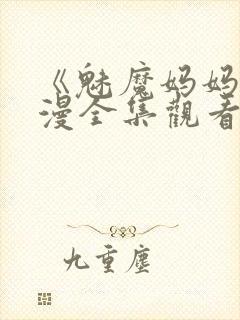 《魅魔妈妈
漫全集觀看
九重塵